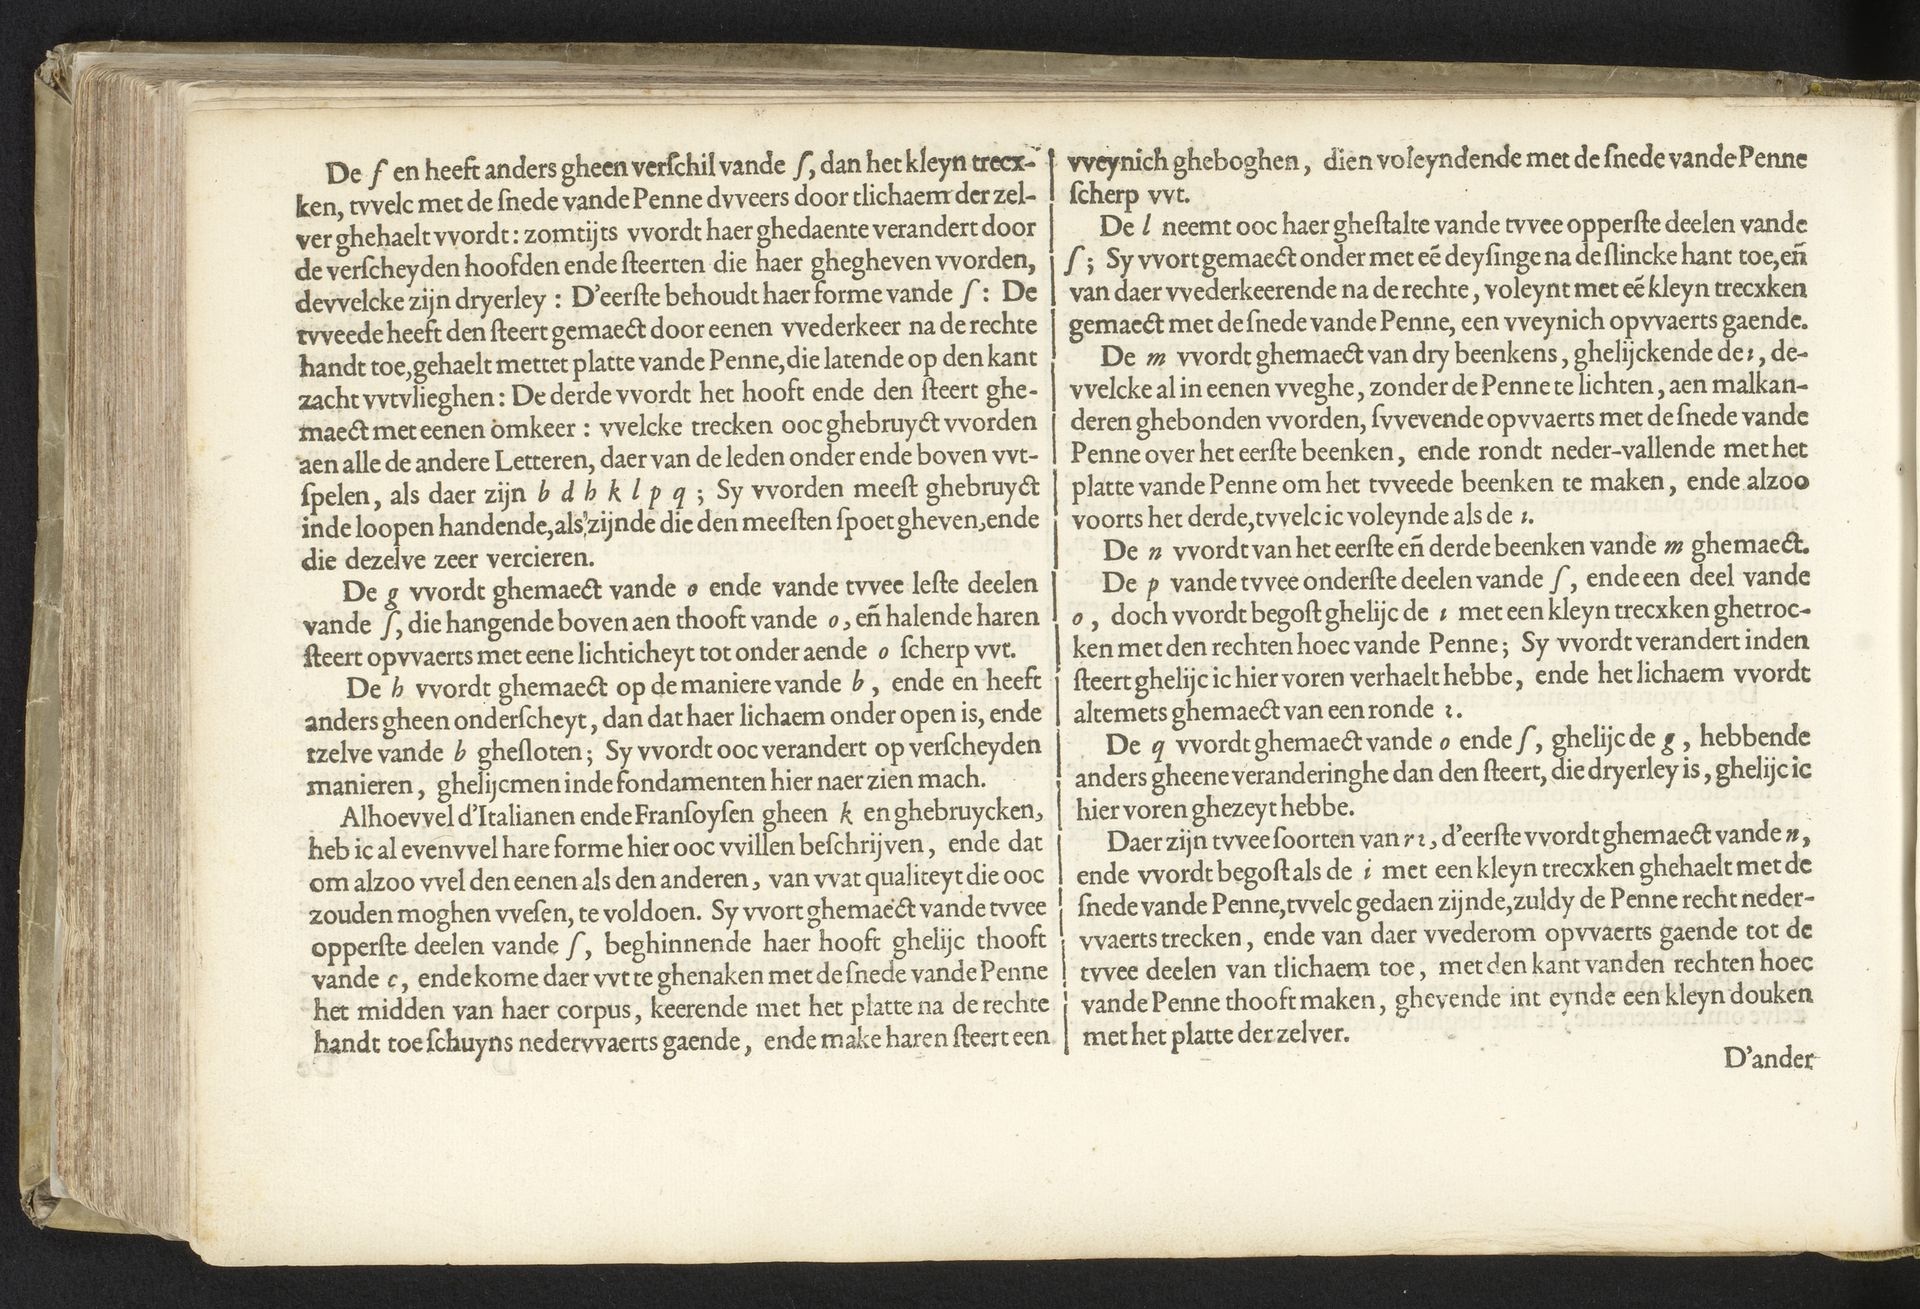 De f en heeft anders gheen verſchil vande ſ, dan het kleyn trecx-
ken, tvvelc met de ſnede vande Penne dvveers door tlichaem der zel-
ver ghehaelt vvordt: zomtijts vvordt haer ghedaente verandert door
de verſcheyden hoofden ende ſteerten die haer ghegheven vvorden,
devvelcke zijn dryerley: D'eerſte behoudt haer forme vande ſ: De
tvveede heeft den ſteert gemaect door eenen vvederkeer na de rechte
handt toe, gehaelt mettet platte vande Penne, die latende op den kant
zacht vvtvlieghen: De derde vvordt het hooft ende den ſteert ghe-
maect met eenen omkeer: vvelcke trecken ooc ghebruyct vvorden
aen alle de andere Letteren, daer van de leden onder ende boven vvt-
ſpelen, als daer zijn b d h k l p q; Sy vvorden meeſt ghebruyct
inde loopen handende, als zijnde die den meeſten ſpoet gheven, ende
die dezelve zeer vercieren.
De g vvordt ghemaect vande o ende vande tvvee leſte deelen
vande ſ, die hangende boven aen thooft vande o, en̄ halende haren
ſteert opvvaerts met eene lichticheyt tot onder aende o ſcherp vvt.
De h vvordt ghemaect op de maniere vande b, ende en heeft
anders gheen onderſcheyt, dan dat haer lichaem onder open is, ende
tzelve vande b gheſloten; Sy vvordt ooc verandert op verſcheyden
manieren, ghelijcmen inde fondamenten hier naer zien mach.
Alhoevvel d'Italianen ende Franſoyſen gheen k en ghebruycken,
heb ic al evenvvel hare forme hier ooc vvillen beſchrijven, ende dat
om alzoo vvel den eenen als den anderen, van vvat qualiteyt die ooc
zouden moghen vveſen, te voldoen. Sy vvort ghemaect vande tvvee
opperſte deelen vande ſ, beghinnende haer hooft ghelijc thooft
vande c, ende kome daer vvt te ghenaken met de ſnede vande Penne
het midden van haer corpus, keerende met het platte na de rechte
handt toe ſchuyns nedervvaerts gaende, ende make haren ſteert een
vveynich gheboghen, dien voleyndende met de ſnede vande Penne
ſcherp vvt.
De l neemt ooc haer gheſtalte vande tvvee opperſte deelen vande
ſ; Sy vvort gemaect onder met eē deyſinge na de ſlincke hant toe, en̄
van daer vvederkeerende na de rechte, voleynt met eē kleyn trecxken
gemaect met de ſnede vande Penne, een vveynich opvvaerts gaende.
De m vvordt ghemaect van dry beenkens, ghelijckende de ı, de-
vvelcke al in eenen vveghe, zonder de Penne te lichten, aen malkan-
deren ghebonden vvorden, ſvvevende opvvaerts met de ſnede vande
Penne over het eerſte beenken, ende rondt neder-vallende met het
platte vande Penne om het tvveede beenken te maken, ende alzoo
voorts het derde, tvvelc ic voleynde als de ı.
De n vvordt van het eerſte en̄ derde beenken vande m ghemaect.
De p vande tvvee onderſte deelen vande ſ, ende een deel vande
o, doch vvordt begoſt ghelijc de ı met een kleyn trecxken ghetroc-
ken met den rechten hoec vande Penne; Sy vvordt verandert inden
ſteert ghelijc ic hier voren verhaelt hebbe, ende het lichaem vvordt
altemets ghemaect van een ronde ꝛ.
De q vvordt ghemaect vande o ende ſ, ghelijc de g, hebbende
anders gheene veranderinghe dan den ſteert, die dryerley is, ghelijc ic
hier voren ghezeyt hebbe.
Daer zijn tvvee ſoorten van r ꝛ, d'eerſte vvordt ghemaect vande n,
ende vvordt begoſt als de i met een kleyn trecxken ghehaelt met de
ſnede vande Penne, tvvelc gedaen zijnde, zuldy de Penne recht neder-
vvaerts trecken, ende van daer vvederom opvvaerts gaende tot de
tvvee deelen van tlichaem toe, met den kant vanden rechten hoec
vande Penne thooft maken, ghevende int eynde een kleyn douken
met het platte der zelver.
D'ander